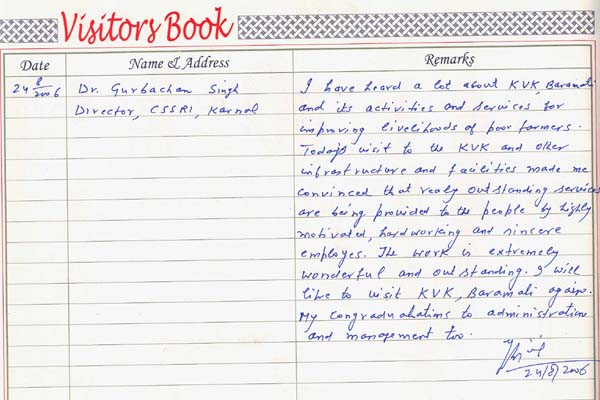 Visitors Book
Date Name & Address Remarks
24 8/2006 Dr. Gurbachan Singh
Director, CSSRI, Karnal
I have heard a lot about KVK, Baramati
and its activities and services for
improving livelihoods of poor farmers.
Today's visit to the KVK and other
infrastructure and facilities made me
convinced that realy outstanding services
are being provided to the people by highly
motivated, hardworking and sincere
employes. The work is extremely
wonderful and outstanding. I will
like to visit KVK, Baramati again.
My congradulations to administration
and management too.
24/8/2006